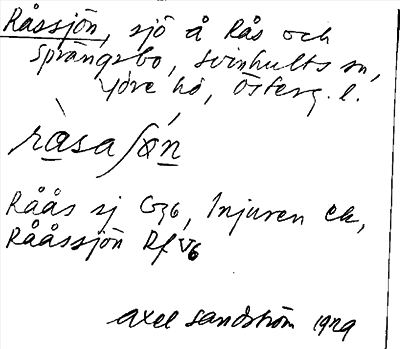 Råssjön, sjö å Rås och
Sprängsbo, Svinhults sn,
Ydre hd, Österg. l.
ràsaʃǿn
Råås sj G36, Injuren ek,
Rååssjön Rf V6
Axel Sandström 1929